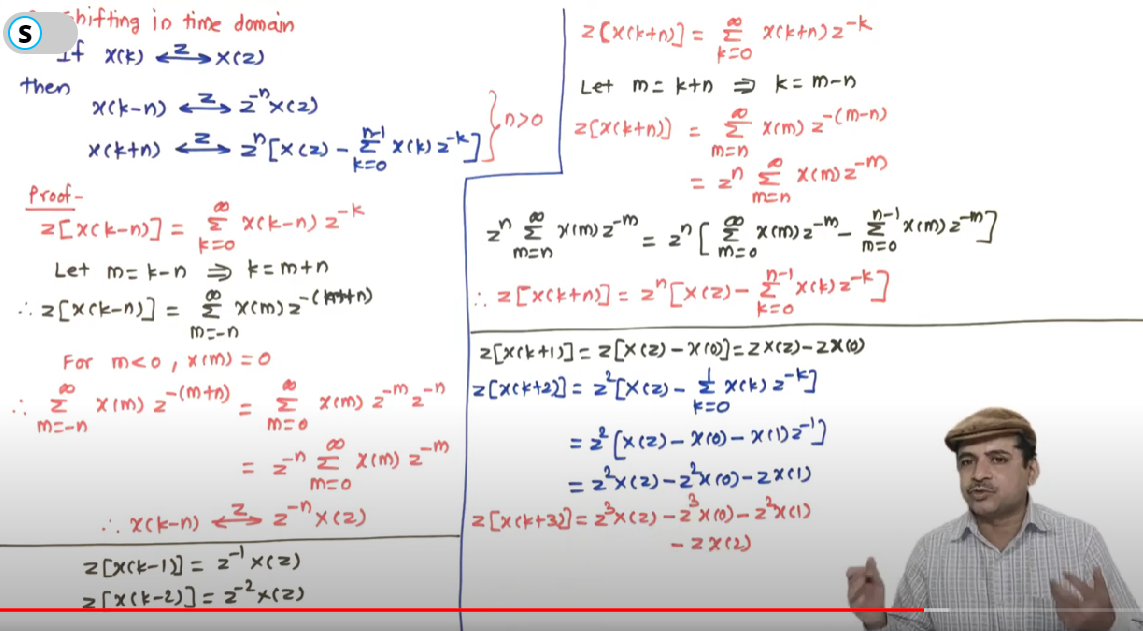 S
shifting in time domain
If x(k) <-Z-> X(z)
then
x(k-n) <-Z-> z^-n X(z)
x(k+n) <-Z-> z^n [X(z) - Σ_{k=0}^{n-1} x(k) z^-k] } n>0
Proof-
Z[x(k-n)] = Σ_{k=0}^{∞} x(k-n) z^-k
Let m = k-n ⇒ k = m+n
∴ Z[x(k-n)] = Σ_{m=-n}^{∞} x(m) z^-(m+n)
For m<0, x(m) = 0
∴ Σ_{m=-n}^{∞} x(m) z^-(m+n) = Σ_{m=0}^{∞} x(m) z^-m z^-n
= z^-n Σ_{m=0}^{∞} x(m) z^-m
∴ x(k-n) <-Z-> z^-n X(z)
Z[x(k-1)] = z^-1 X(z)
Z[x(k-2)] = z^-2 X(z)
Z[x(k+n)] = Σ_{k=0}^{∞} x(k+n) z^-k
Let m = k+n ⇒ k = m-n
Z[x(k+n)] = Σ_{m=n}^{∞} x(m) z^-(m-n)
= z^n Σ_{m=n}^{∞} x(m) z^-m
z^n Σ_{m=n}^{∞} x(m) z^-m = z^n [Σ_{m=0}^{∞} x(m) z^-m - Σ_{m=0}^{n-1} x(m) z^-m]
∴ Z[x(k+n)] = z^n [X(z) - Σ_{k=0}^{n-1} x(k) z^-k]
Z[x(k+1)] = z[X(z) - x(0)] = zX(z) - zx(0)
Z[x(k+2)] = z^2 [X(z) - Σ_{k=0}^{1} x(k) z^-k]
= z^2 [X(z) - x(0) - x(1) z^-1]
= z^2 X(z) - z^2 x(0) - zx(1)
Z[x(k+3)] = z^3 X(z) - z^3 x(0) - z^2 x(1)
- zx(2)